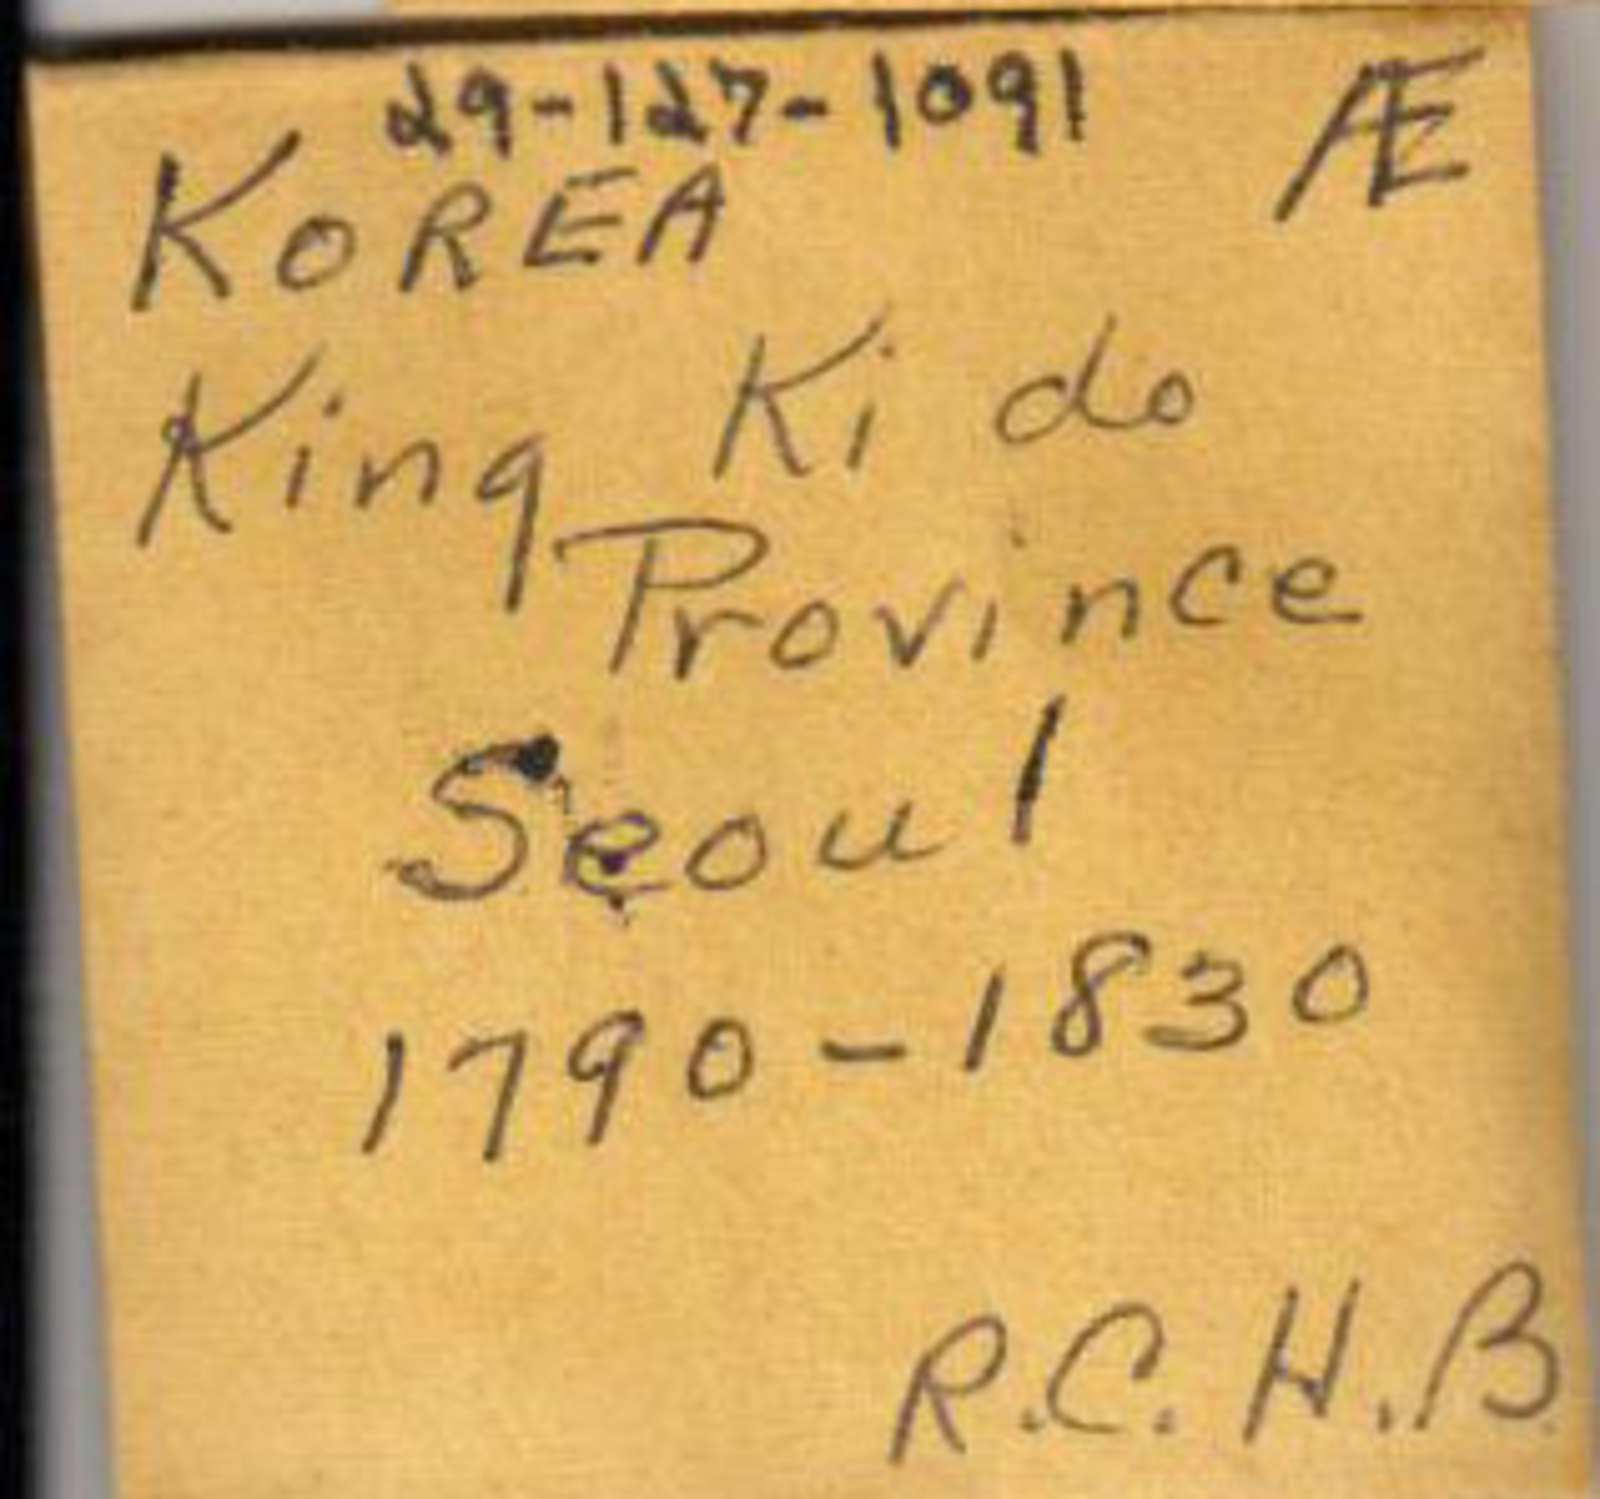 29-127-1091
Æ
KOREA
King Ki do
Province
Seoul
1790-1830
R.C.H.B.